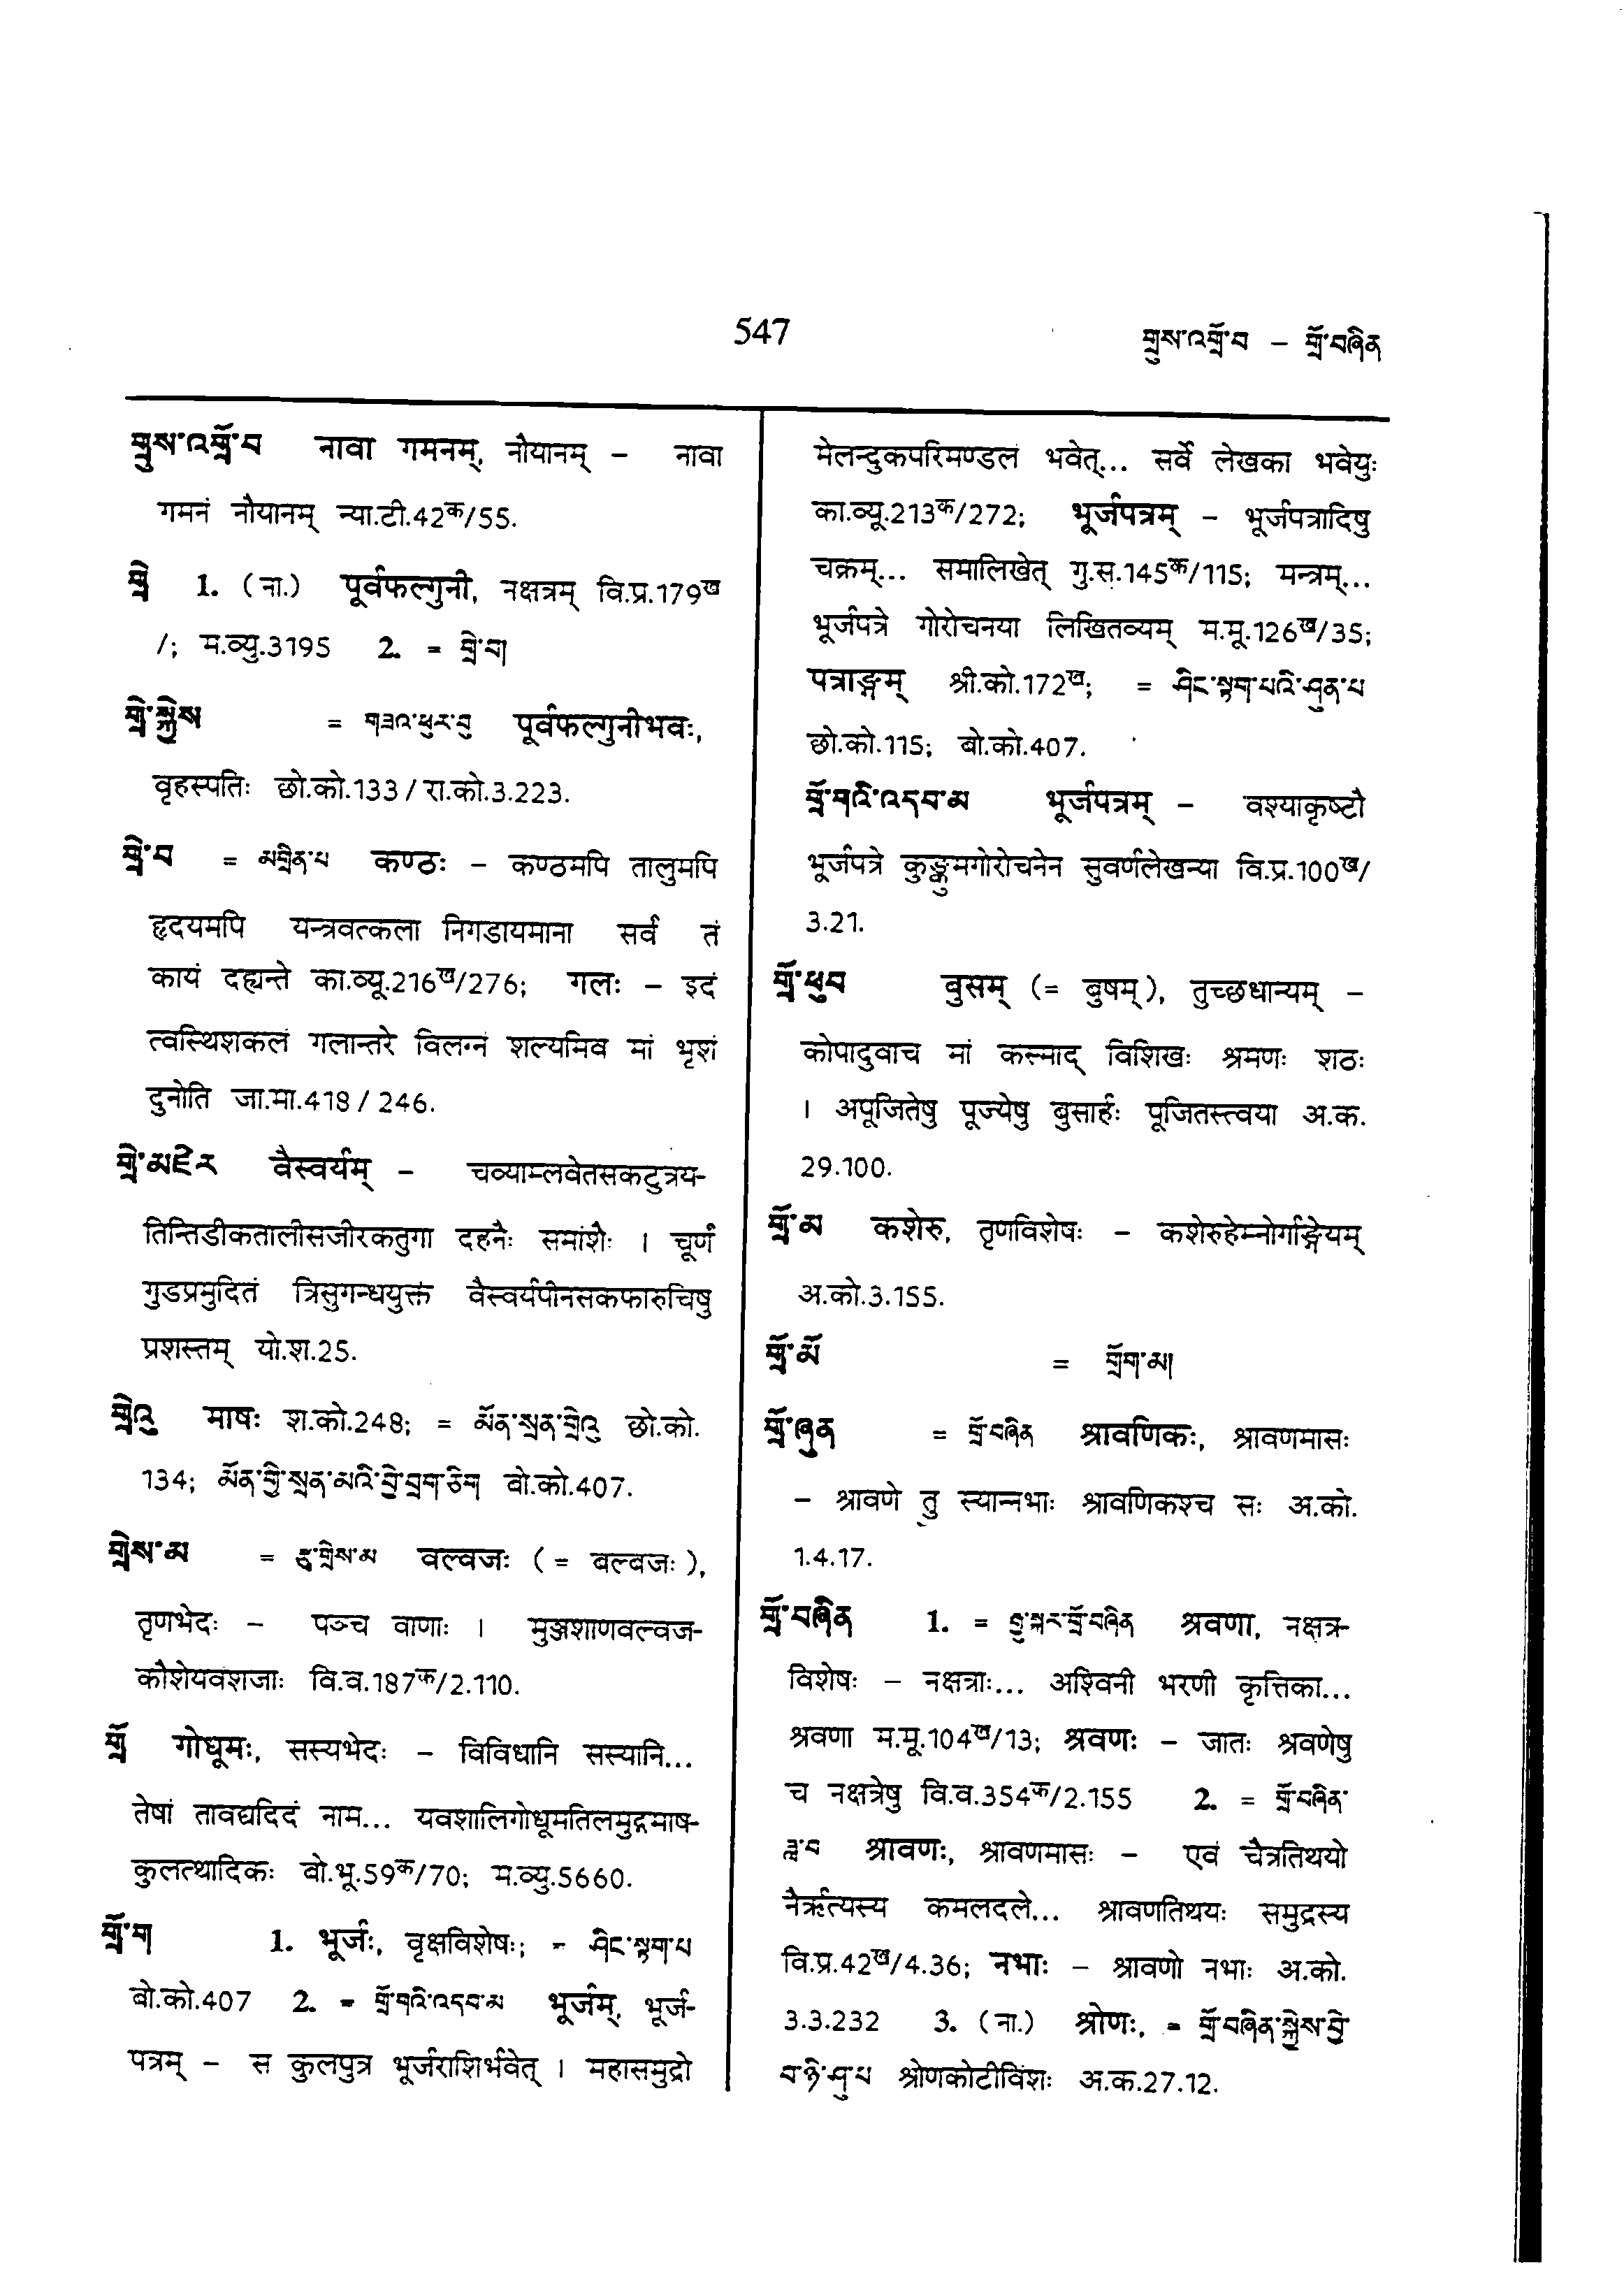 547
གྲུས་འགྲོ་བ – གྲོ་བཞིན
གྲུས་འགྲོ་བ नावा गमनम्, नौयानम् – नावा
गमनं नौयानम् न्या.टी.42क/55.
གྲེ 1. (ना.) पूर्वफल्गुनी, नक्षत्रम् वि.प्र.179ख
/; म.व्यु.3195 2. = གྲེ་བ།
གྲེ་སྐྱེས = གཟའ་ཕུར་བུ पूर्वफल्गुनीभवः,
वृहस्पतिः छो.को.133 / रा.को.3.223.
གྲེ་བ = མགྲིན་པ कण्ठः – कण्ठमपि तालुमपि
हृदयमपि यन्त्रवत्कला निगडायमाना सर्व तं
कायं दह्यन्ते का.व्यू.216ख/276; गलः – इदं
त्वस्थिशकलं गलान्तरे विलग्नं शल्यमिव मां भृशं
दुनोति जा.मा.418 / 246.
གྲེ་མཛེར वैस्वर्यम् – चव्याम्लवेतसकटुत्रय-
तिन्तिडीकतालीसजीरकतुगा दहनैः समांशैः । चूर्णं
गुडप्रमुदितं त्रिसुगन्धयुक्तं वैस्वर्यपीनसकफारुचिषु
प्रशस्तम् यो.श.25.
གྲེའུ माषः श.को.248; = མོན་སྲན་གྲེའུ छो.को.
134; མོན་གྱི་སྲན་མའི་བྱེ་བྲག་ཅིག वो.को.407.
གྲེས་མ = རྩྭ་གྲེས་མ वल्वजः (= बल्वजः),
तृणभेदः – पञ्च वाणाः । मुञ्जशाणवल्वज-
कौशेयवंशजाः वि.व.187क/2.110.
གྲོ गोधूमः, सस्यभेदः – विविधानि सस्यानि...
तेषां तावद्यदिदं नाम... यवशालिगोधूमतिलमुद्गमाष-
कुलत्थादिकः वो.भू.59क/70; म.व्यु.5660.
གྲོ་ག 1. भूर्जः, वृक्षविशेषः; = ཤིང་སྟག་པ
बो.को.407 2. = གྲོ་གའི་འདབ་མ भूर्जम्, भूर्ज-
पत्रम् – स कुलपुत्र भूर्जराशिर्भवेत् । महासमुद्रो
मेलन्दुकपरिमण्डलं भवेत्... सर्वे लेखका भवेयुः
का.व्यू.213क/272; भूर्जपत्रम् – भूर्जपत्रादिषु
चक्रम्... समालिखेत् गु.स.145क/115; मन्त्रम्...
भूर्जपत्रे गोरोचनया लिखितव्यम् म.मू.126ख/35;
पत्राङ्गम् श्री.को.172ख; = ཤིང་སྟག་པའི་ཤུན་པ
छो.को.115; बो.को.407.
གྲོ་གའི་འདབ་མ भूर्जपत्रम् – वश्याकृष्टौ
भूर्जपत्रे कुङ्कुमगोरोचनेन सुवर्णलेखन्या वि.प्र.100ख/
3.21.
གྲོ་ཕུབ वुसम् (= बुषम्), तुच्छधान्यम् –
कोपादुवाच मां कस्माद् विशिखः श्रमणः शठः
। अपूजितेषु पूज्येषु बुसार्हः पूजितस्त्वया अ.क.
29.100.
གྲོ་མ कशेरु, तृणविशेषः – कशेरुहेम्नोर्गाङ्गेयम्
अ.को.3.155.
གྲོ་མོ = གྲོག་མ།
གྲོ་ཞུན = གྲོ་བཞིན श्रावणिकः, श्रावणमासः
– श्रावणे तु स्यान्नभाः श्रावणिकश्च सः अ.को.
1.4.17.
གྲོ་བཞིན 1. = རྒྱུ་སྐར་གྲོ་བཞིན श्रवणा, नक्षत्र-
विशेषः – नक्षत्राः... अश्विनी भरणी कृत्तिका...
श्रवणा म.मू.104ख/13; श्रवणः – जातः श्रवणेषु
च नक्षत्रेषु वि.व.354क/2.155 2. = གྲོ་བཞིན་
ཟླ་བ श्रावणः, श्रावणमासः – एवं चैत्रतिथयो
नैर्ऋत्यस्य कमलदले... श्रावणतिथयः समुद्रस्य
वि.प्र.42ख/4.36; नभाः – श्रावणो नभाः अ.को.
3.3.232 3. (ना.) श्रोणः, = གྲོ་བཞིན་སྐྱེས་བྱེ་
བ་ཉི་ཤུ་པ श्रोणकोटीविंशः अ.क.27.12.